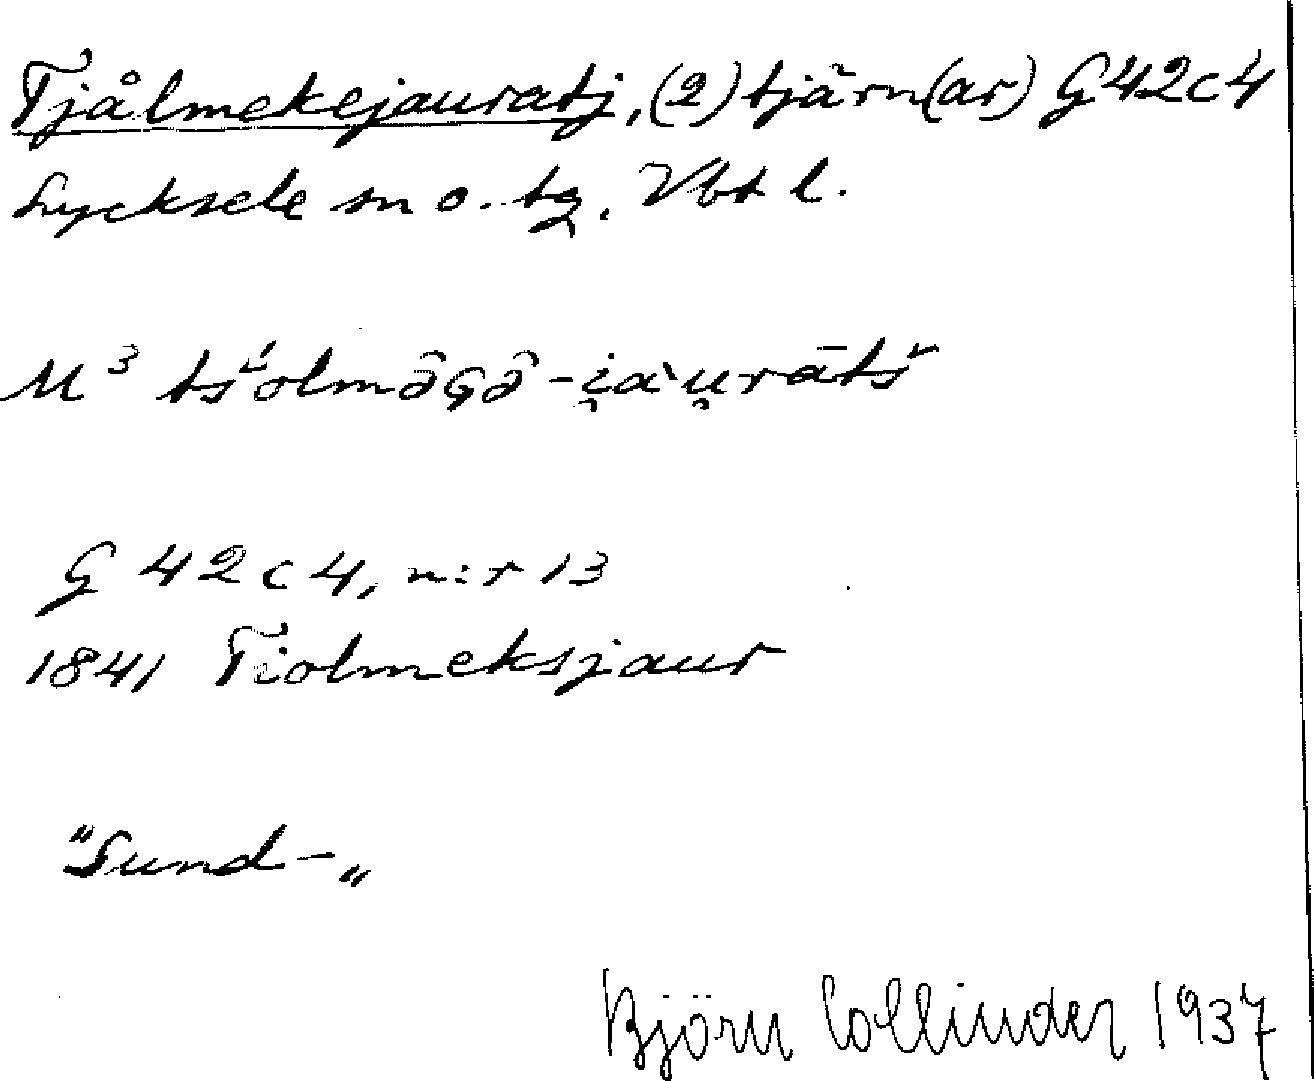 Tjålmekejauratj, (2) tjärn(ar) G42c4
Lycksele sn o. tg. Vbt l.
M³ tš́olmə̑Gə̑-i̯àu̯rātš
G 42c4, n:r 13
1841 Tiolmeksjaur
"Sund-„
Björn Collinder 1937